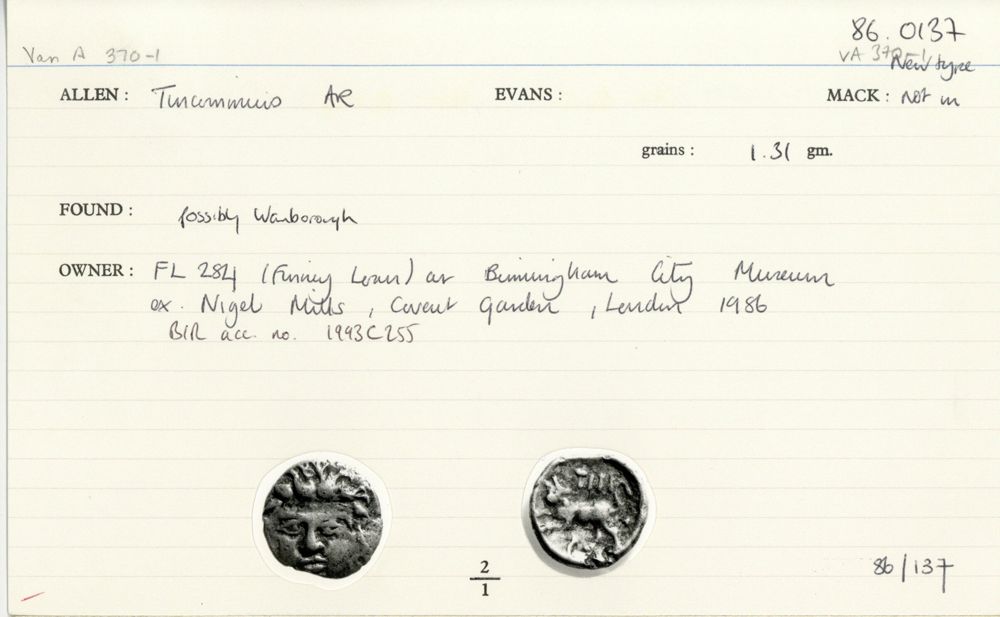 86.0137
Van A 370-1
VA 370-1
New type
ALLEN : Tincommius AR EVANS : MACK : not in
grains : 1.31 gm.
FOUND : possibly Wanborough
OWNER : FL 284 (Finney Loan) at Birmingham City Museum
ex. Nigel Mills, Covent Garden, London 1986
BIR acc. no. 1993C255
TIN
2
1
86/137